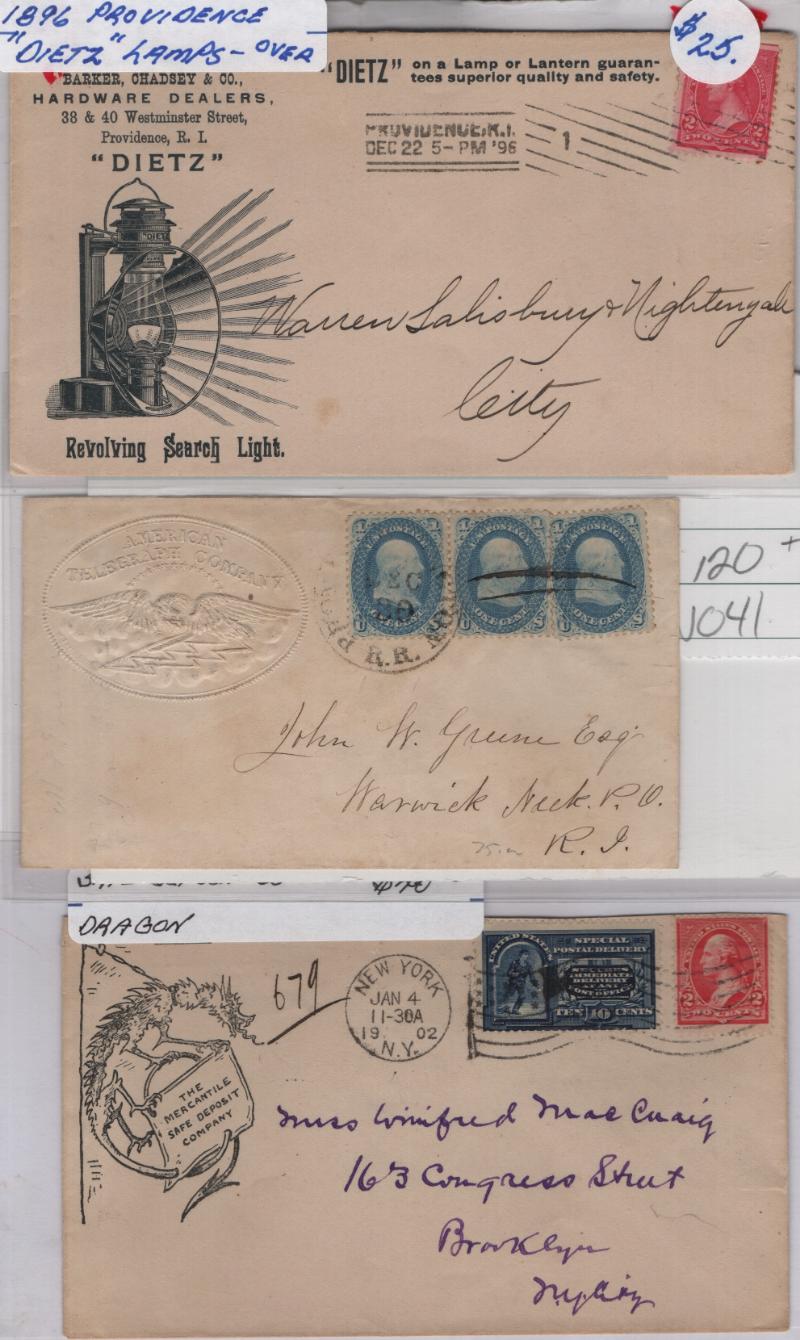 1896 PROVIDENCE
"DIETZ" LAMPS - OVER
$25.
BARKER, CHADSEY & CO.,
HARDWARE DEALERS,
38 & 40 Westminster Street,
Providence, R. I.
"DIETZ"
"DIETZ" on a Lamp or Lantern guaran-
tees superior quality and safety.
PROVIDENCE, R.I.
DEC 22 5-PM '96
1
2 2
TWO CENTS
DIETZ
Warren Salisbury & Nightengale
City
Revolving Search Light.
AMERICAN
TELEGRAPH COMPANY
U.S. POSTAGE
ONE CENT
DEC
30
R.R.
120 +
1041
John W. Greene Esq
Warwick Neck. P.O.
R. I.
DRAGON
679
NEW YORK
JAN 4
11-30A
19 02
N.Y.
UNITED STATES
SPECIAL
POSTAL DELIVERY
SECURES
IMMEDIATE
DELIVERY
AT ANY
POST OFFICE
TEN 10 CENTS
2 2
TWO CENTS
THE
MERCANTILE
SAFE DEPOSIT
COMPANY
Miss Winifred MacCuaig
163 Congress Street
Brooklyn
N.Y. City